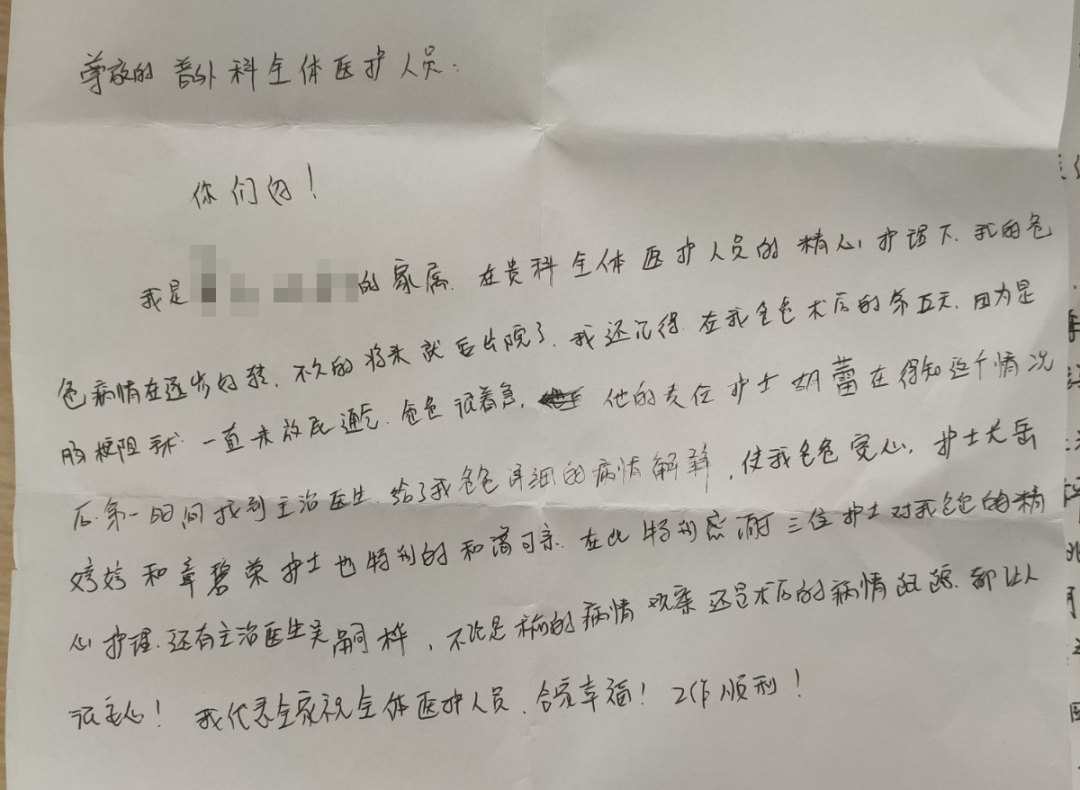 尊敬的普外科全体医护人员:
你们好!
我是 的家属.在贵科全体医护人员的精心护理下.我的爸
爸病情在逐步好转.不久的将来就要出院了.我还记得.在我爸爸术后的第五天.因为是
肠梗阻 一直未放屁通气.爸爸很着急, 他的责任护士胡蕾在得知这个情况
后.第一时间找到主治医生.给了我爸爸详细的病情解释,使我爸爸宽心.护士长岳
婷婷和章碧荣护士也特别的和蔼可亲.在此特别感谢三位护士对我爸爸的精
心护理.还有主治医生吴嗣桦,不论是 的病情观察还是术后的病情跟踪.都让人
很安心!我代表全家祝全体医护人员.合家幸福!工作顺利!